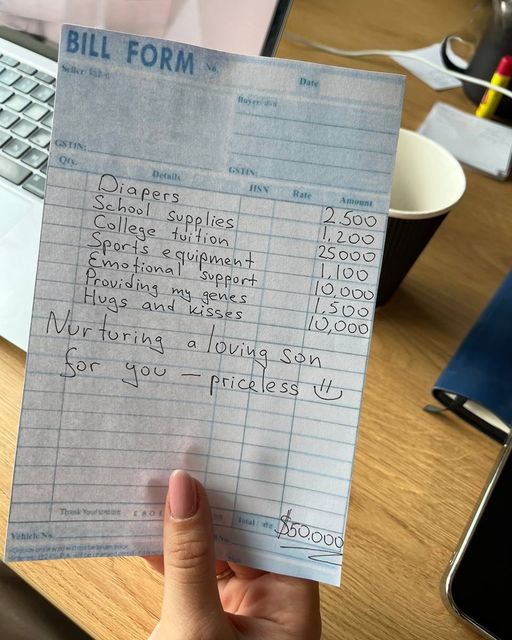 BILL FORM No.
Date
Seller:
Buyer:
GSTIN:
GSTIN:
Qty. Details HSN Rate Amount
Diapers 2,500
School supplies 1,200
College tuition 25000
Sports equipment 1,100
Emotional support 10,000
Providing my genes 1,500
Hugs and kisses 10,000
Nurturing a loving son
for you – priceless
Thank You E.&O.E. Total $50.000
Vehicle No.